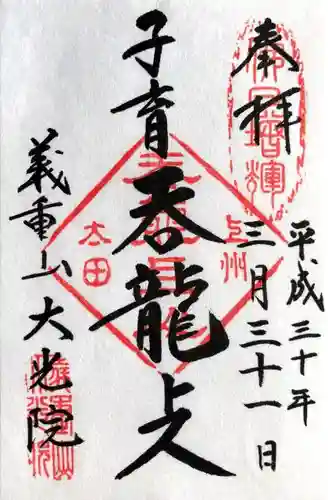 奉拝
平成三十年
三月三十一日
子育呑龍上人
義重山大光院
上州
太田